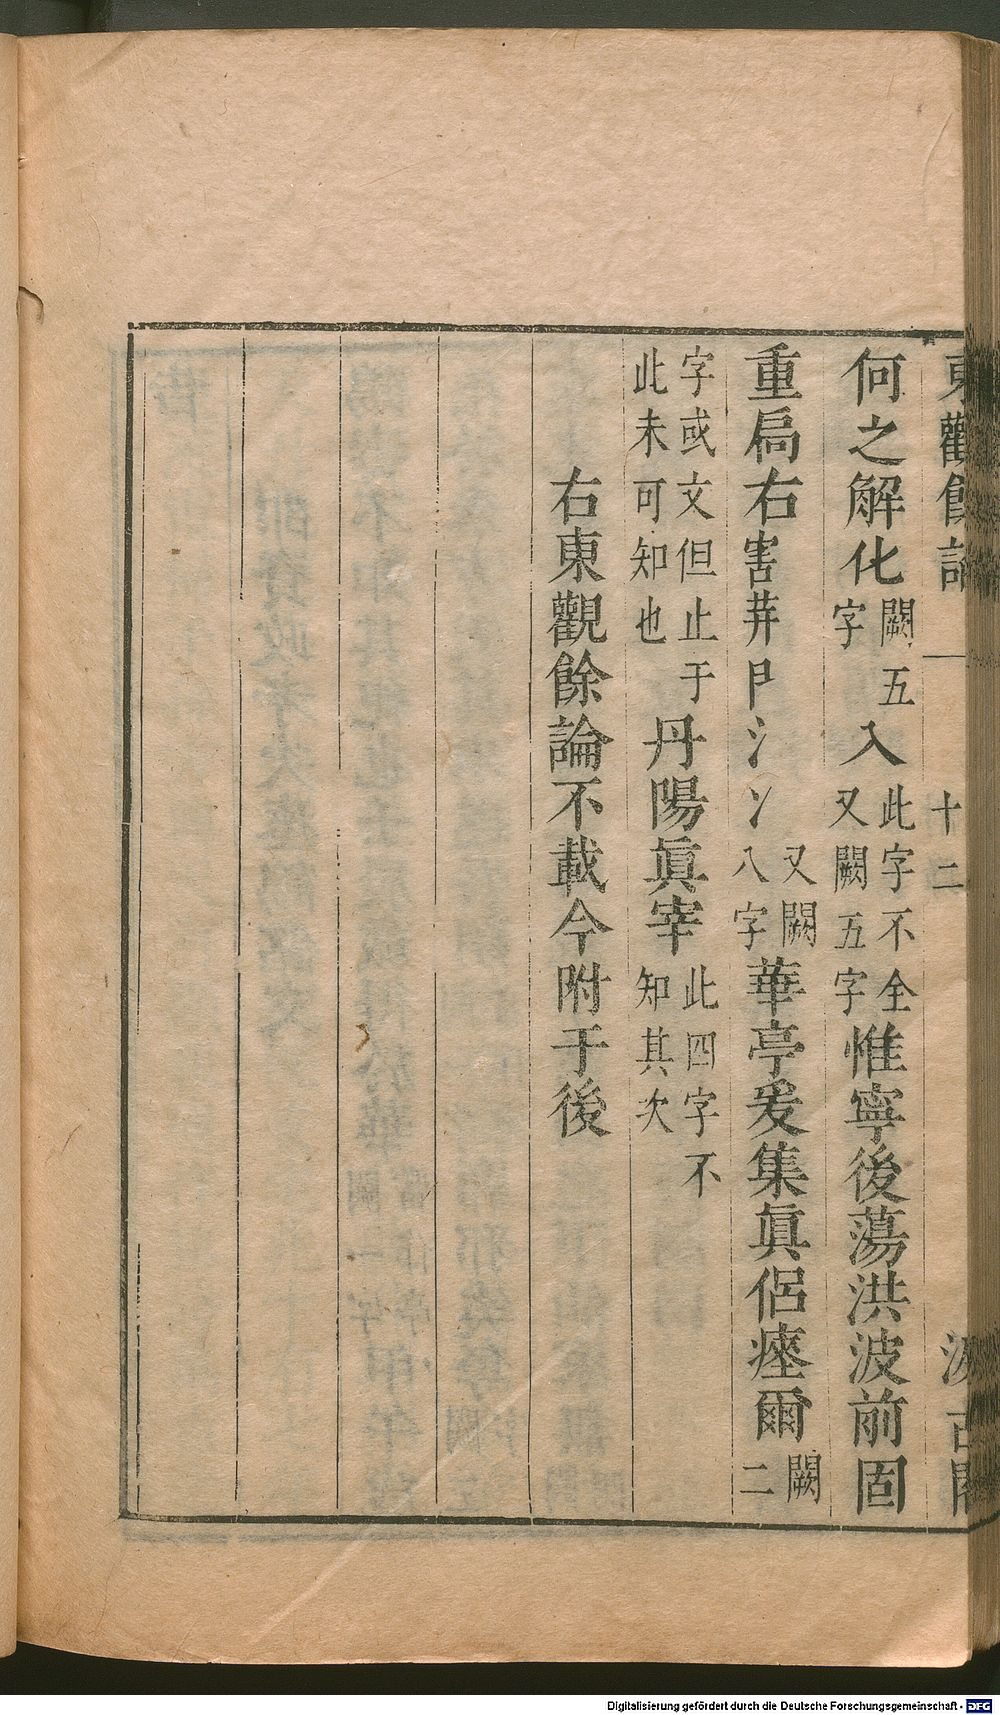 東觀餘論 十二 汲古閣
何之解化闕五字入此字不全又闕五字惟寧後蕩洪波前固
重扃右害荓𠁣氵丷又闕八字華亭爰集眞侶瘞爾闕二
字或文但止于此未可知也丹陽眞宰此四字不知其次
右東觀餘論不載今附于後
Digitalisierung gefördert durch die Deutsche Forschungsgemeinschaft - DFG